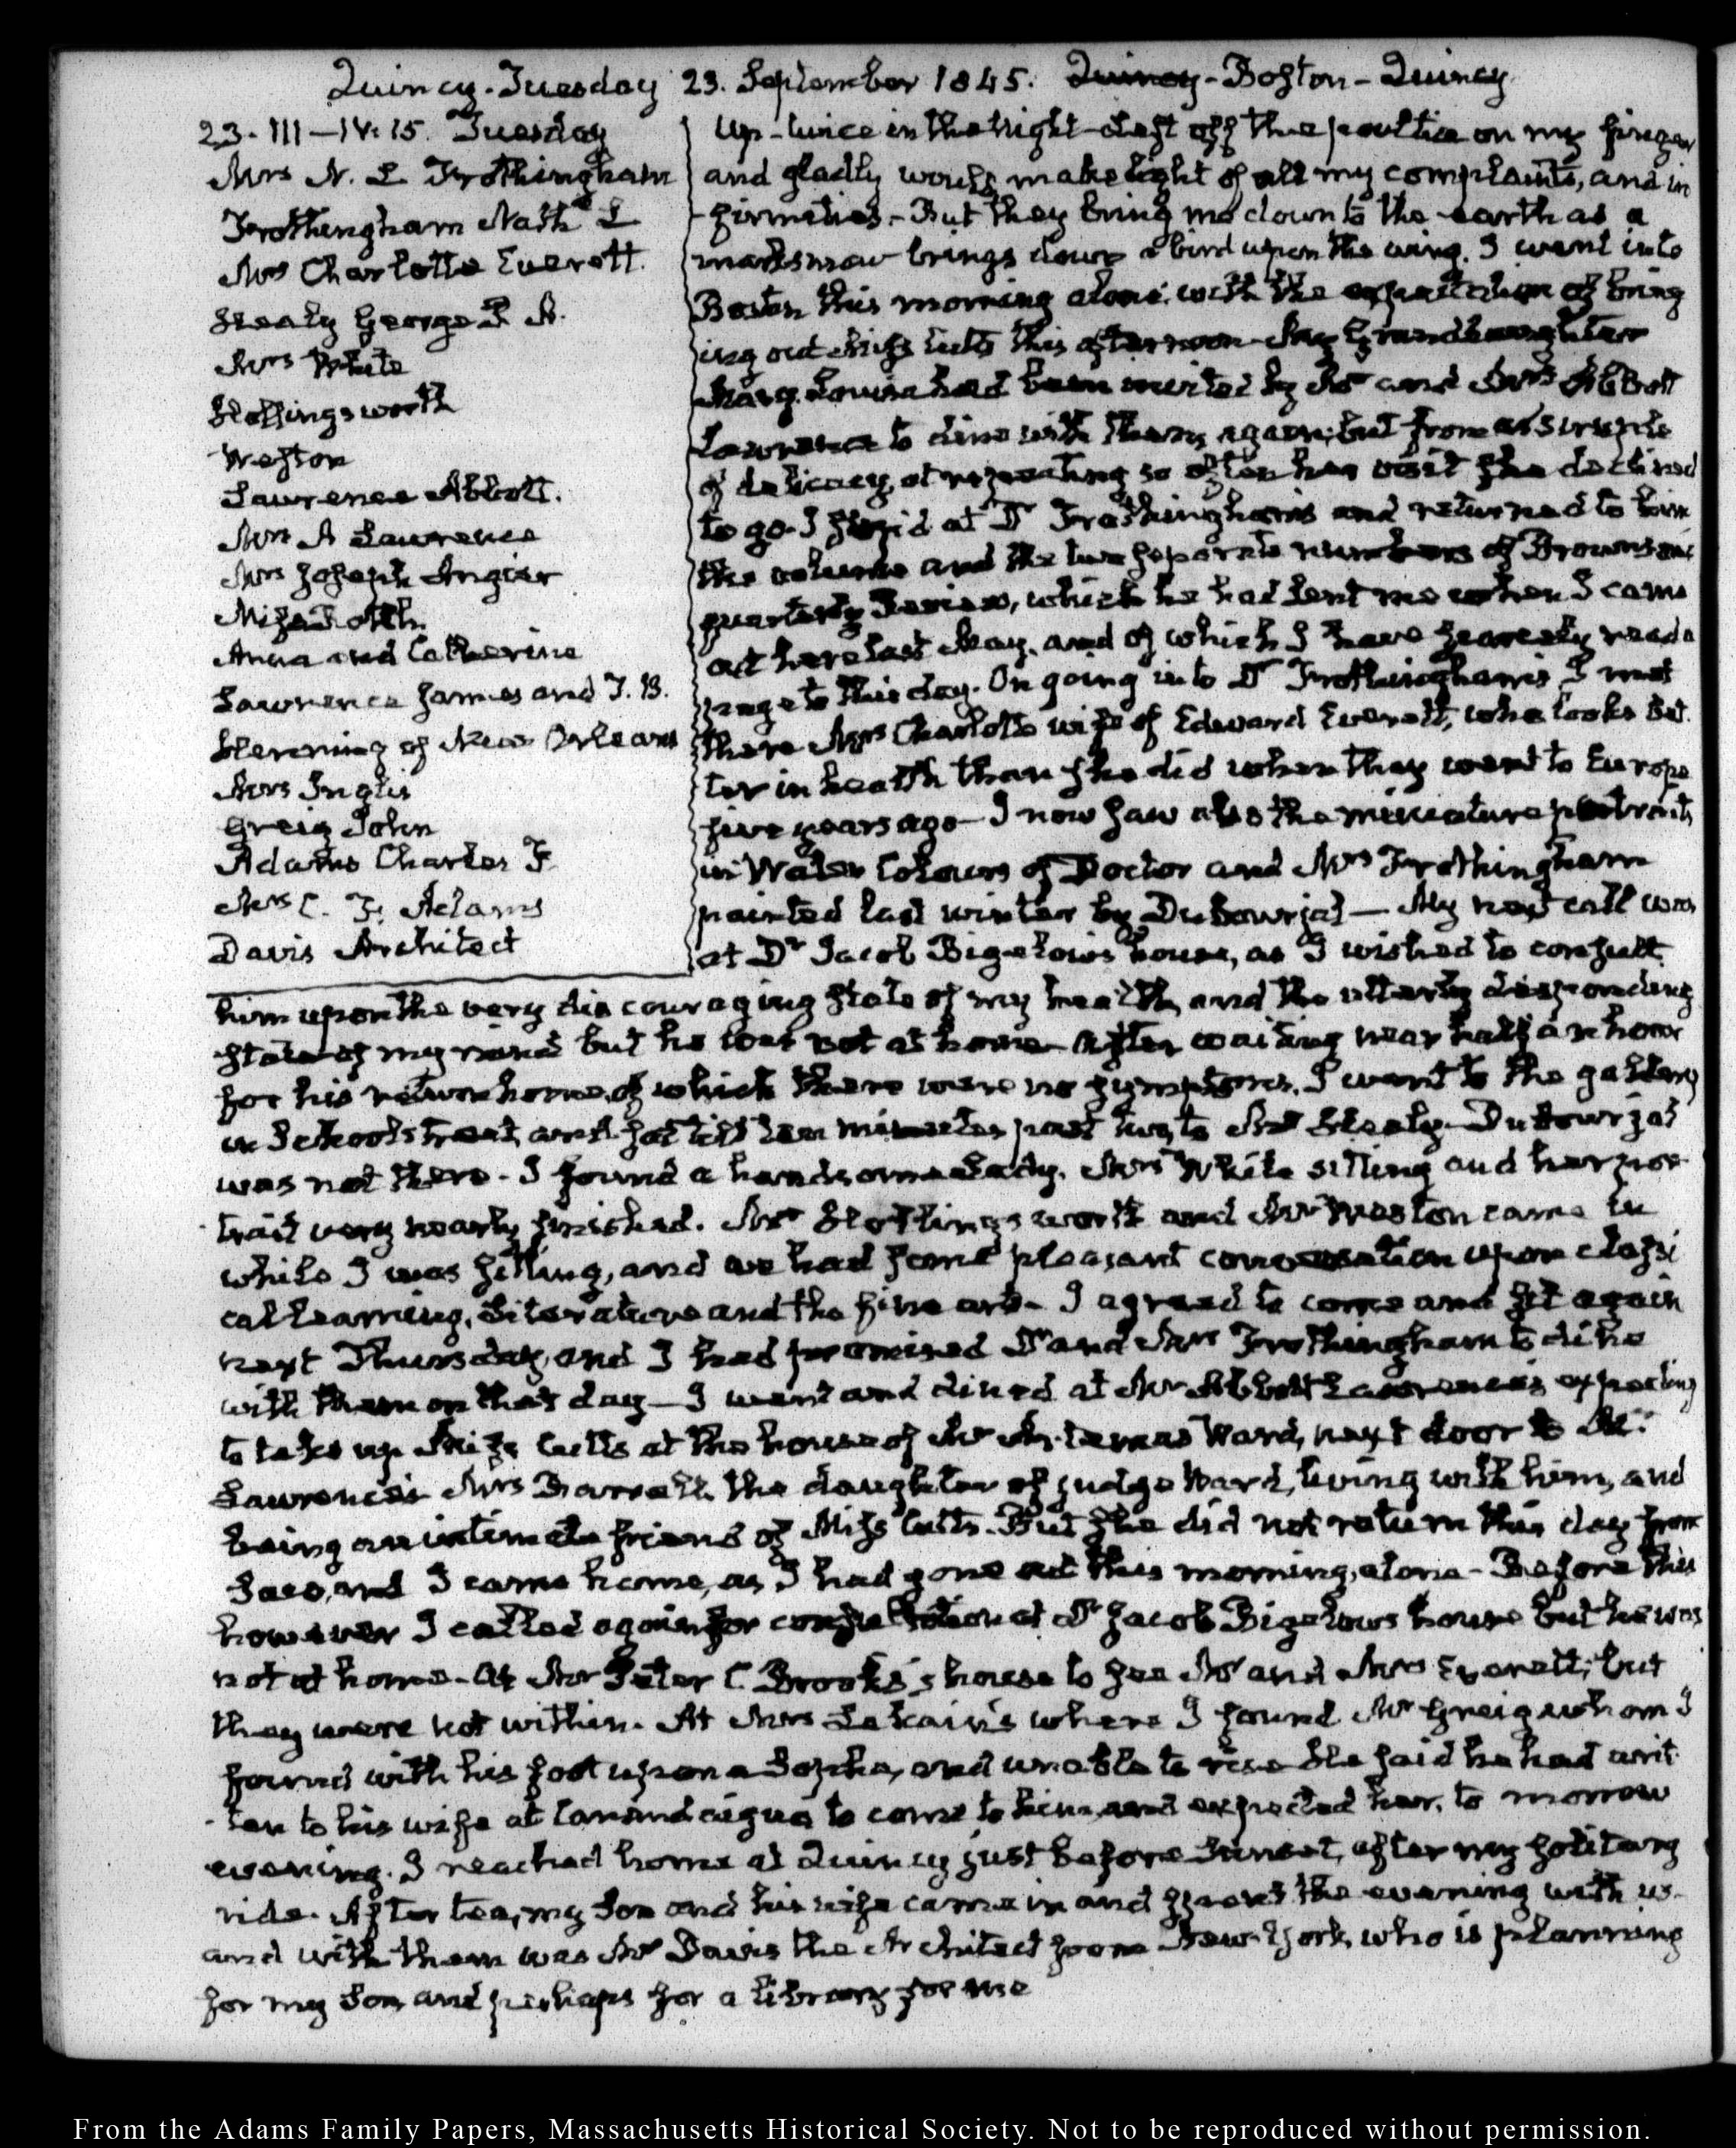 Quincy. Tuesday 23. September 1845. Quincy - Boston - Quincy
23. III—IV:15. Tuesday
Mrs N. L Frothingham
Frothingham Nath' L
Mrs Charlotte Everett.
Healy George P. A.
Mrs White
Hollingsworth
Weston
Lawrence Abbott.
Mrs A Lawrence
Mrs Joseph Angier
Miss
Anna and Catherine
Lawrence James and T. B.
of New Orleans
Mrs Inglis
Greig John
Adams Charles F.
Mrs C. F. Adams
Davis Architect
Up - twice in the Night - left off the poultice on my finger
and gladly would make light of all my complaints, and in
firmities. - But they bring me down to the earth as a
marksman brings down a bird upon the wing. I went into
Boston this morning alone with the expectation of bring
ing out Miss Cutts this afternoon - My Granddaughter
Mary Louisa had been invited by Mr and Mrs Abbott
Lawrence to dine with them again; but from a scruple
of delicacy, at repeating so often her visit she declined
to go. I stop'd at Dr Frothingham's and returned to him
the volume and the two separate numbers of Brownson's
quarterly Review, which he had lent me when I came
out here last May. and of which I have scarcely read a
page to this day. On going into Dr Frothingham's I met
there Mrs Charlotte wife of Edward Everett, who looks bet
ter in health than she did when they went to Europe
five years ago - I now saw also the miniature portraits
in Water Colours of Doctor and Mrs Frothingham
painted last winter by Dubourjal — My next call was
at Dr Jacob Bigelow's house, as I wished to consult
him upon the very discouraging state of my health, and the utterly desponding
state of my mind but he was not at home - after waiting near half an hour
for his return home, of which there were no symptoms. I went to the gallery
in School street, and sat till ten minutes past two, to Mr Healy - Dubourjal
was not there - I found a handsome Lady. Mrs White sitting and her por
trait very nearly finished. Mr Hollingsworth and Mr Weston came in
while I was sitting, and we had some pleasant conversation upon classi
cal learning, Literature and the fine arts - I agreed to come and sit again
next Thursday, and I had promised Dr and Mrs Frothingham to dine
with them on that day — I went and dined at Mr Abbott Lawrence's expecting
to take up Miss Cutts at the house of Mr Artemas Ward, next door to Mr
Lawrence's Mrs the daughter of judge Ward, living with him, and
being an intimate friend of Miss Cutts. But she did not return this day from
Saco, and I came home, as I had gone out this morning, alone - Before this
however I called again for consultation at Dr Jacob Bigelow's house but he was
not at home - At Mr Peter C. Brooks's house to see Mr and Mrs Everett; but
they were not within. At Mrs where I found Mr Greig whom I
found with his foot upon a Sopha, and unable to rise He said he had writ
ten to his wife at Canandaigua to come to him, and expected her, to morrow
evening. I reached home at Quincy just before Sunset, after my solitary
ride. After tea, my Son and his wife came in and spent the evening with us
and with them was Mr Davis the Architect from New-York, who is planning
for my Son, and perhaps for a library for me
From the Adams Family Papers, Massachusetts Historical Society. Not to be reproduced without permission.